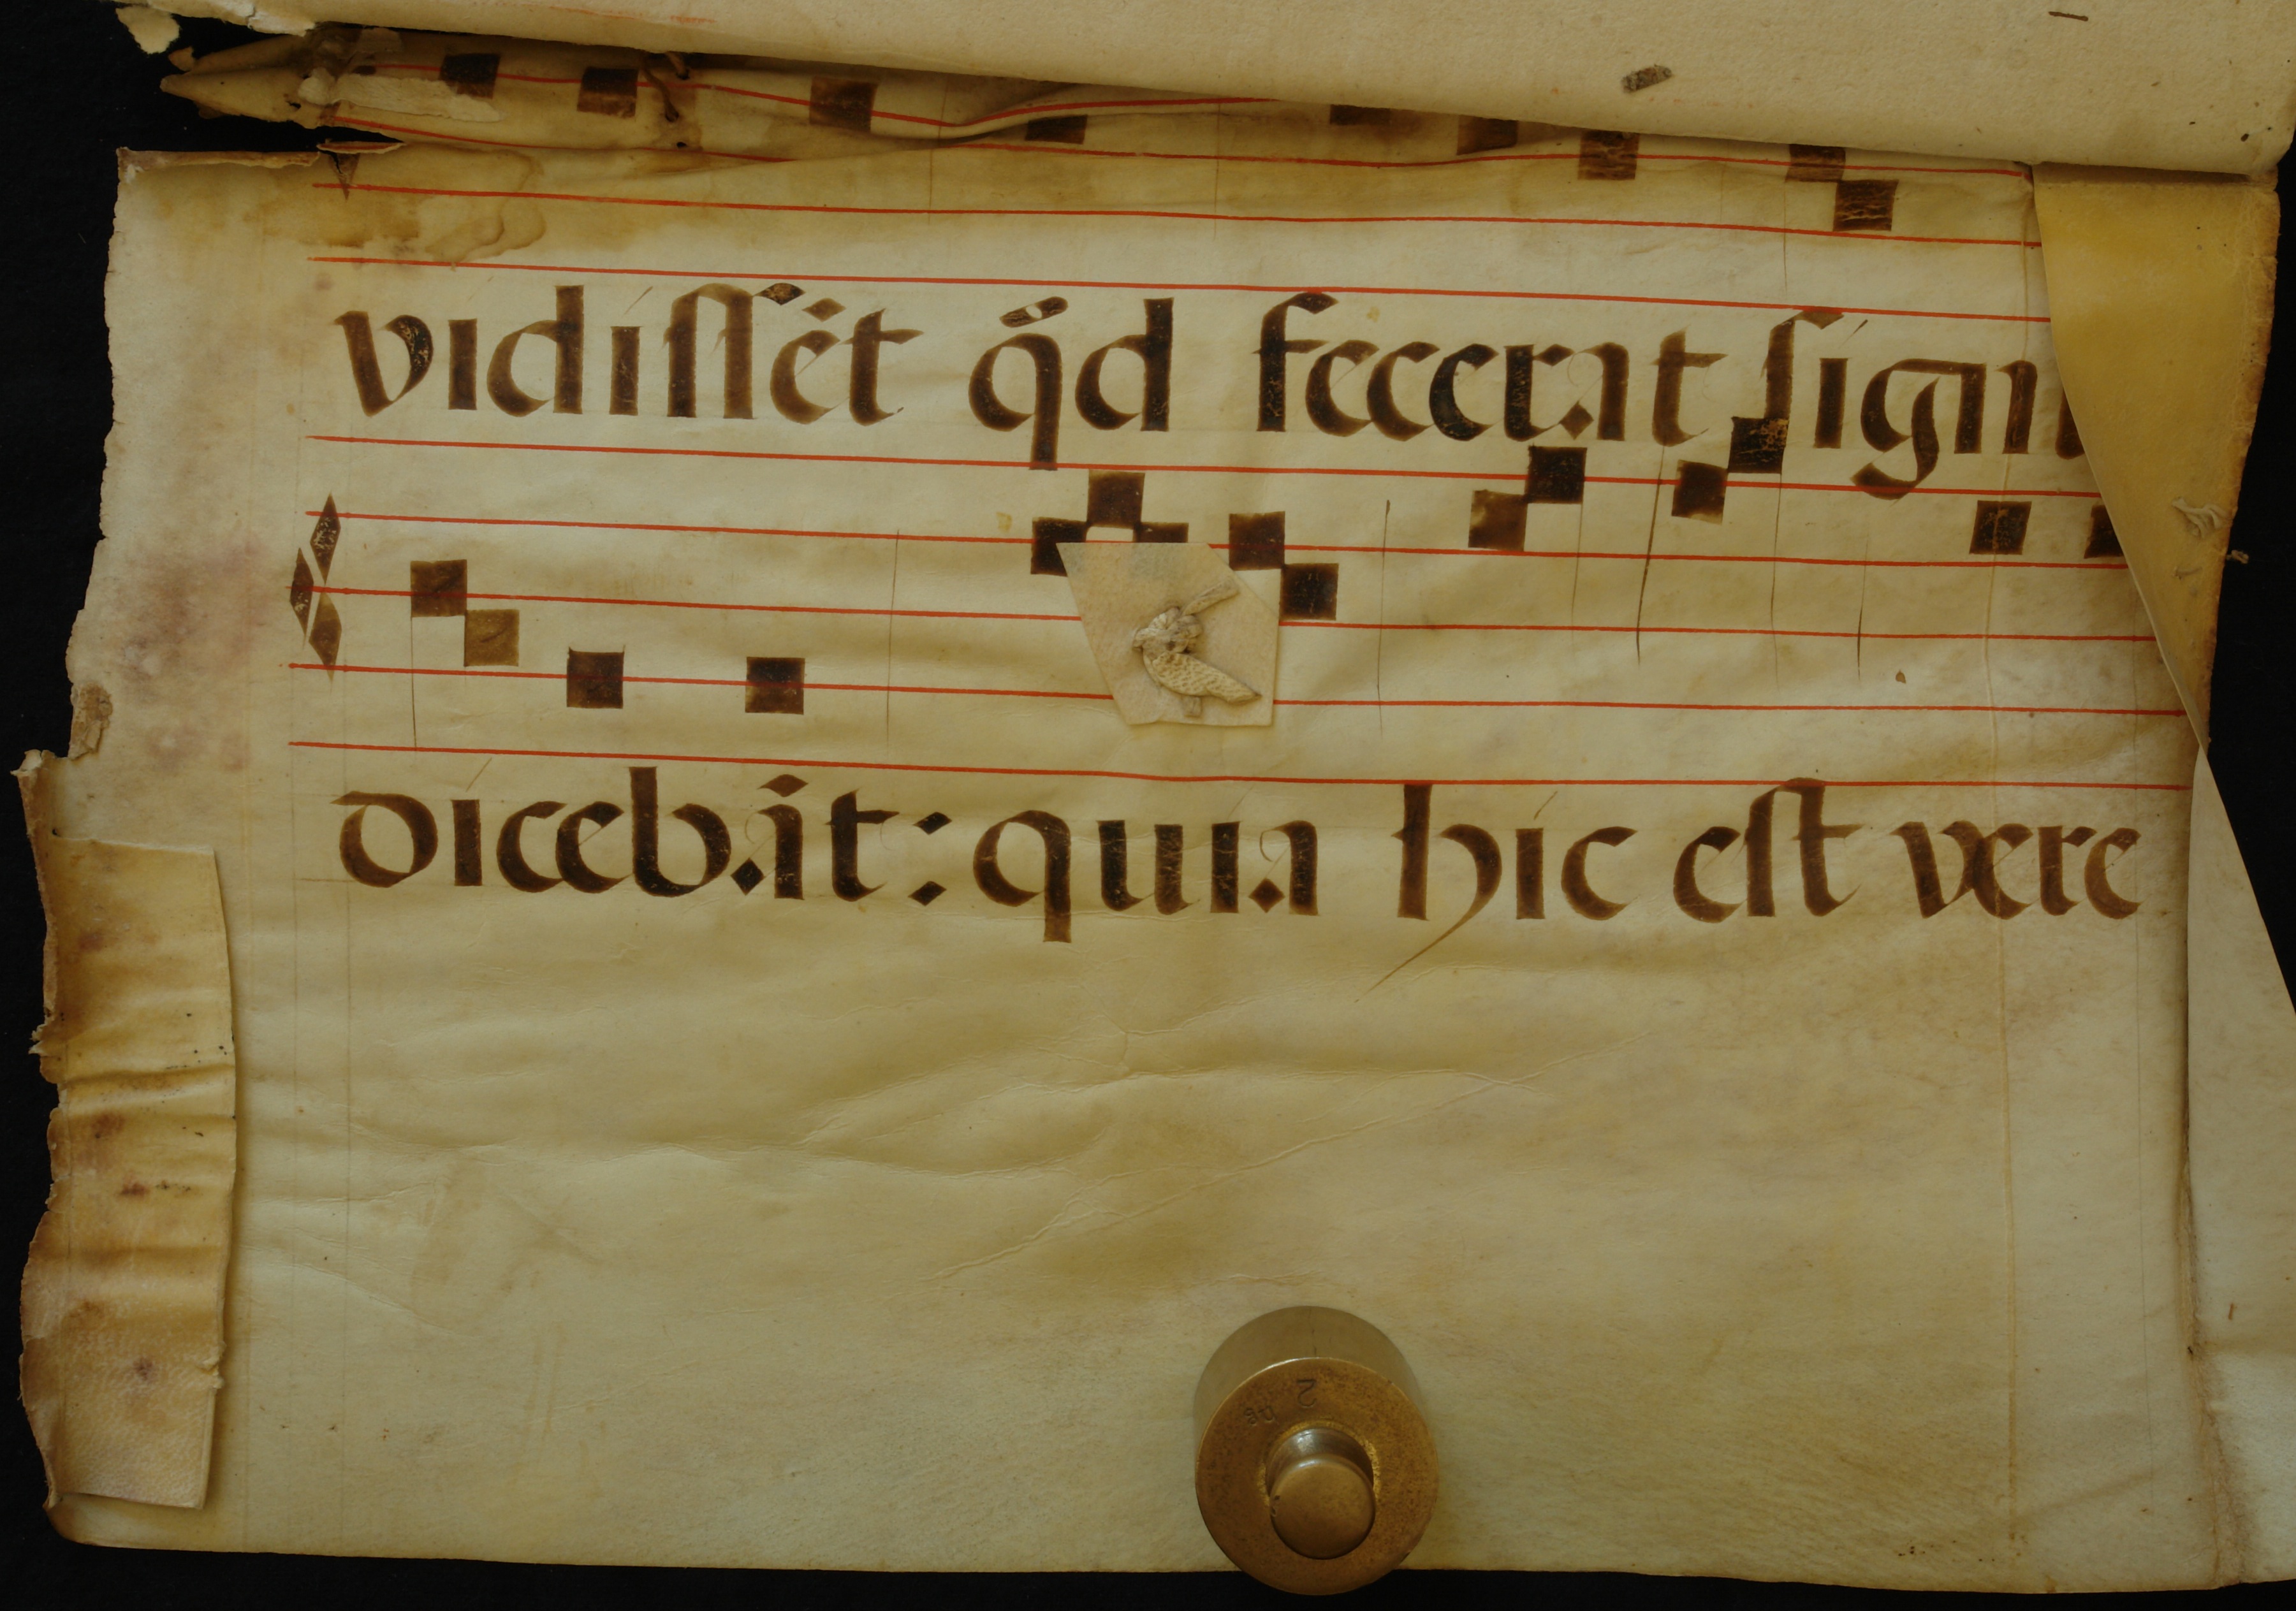 vidissēt q̄d fecerat sign
dicebāt: quia hic est vere
2